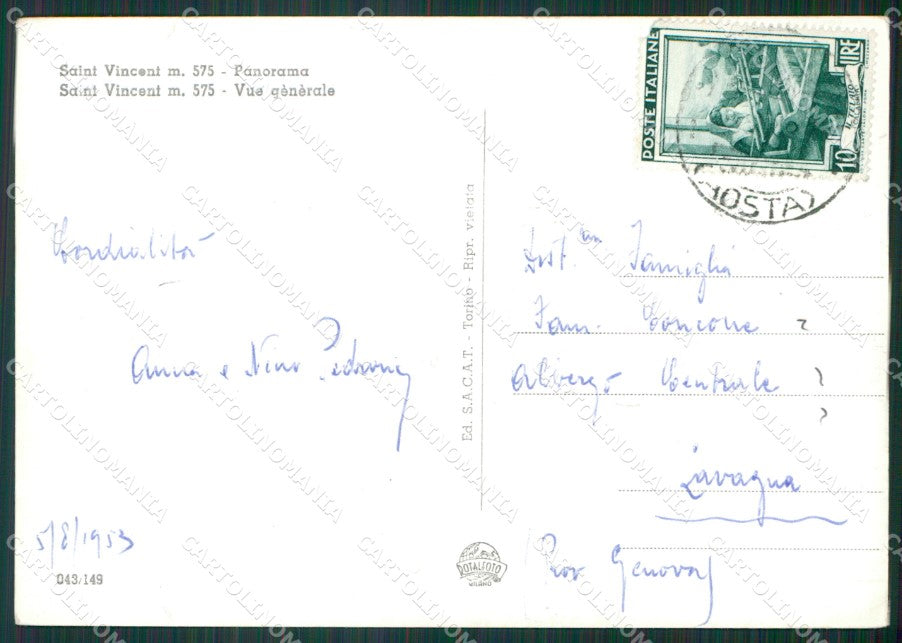 Saint Vincent m. 575 - Panorama
Saint Vincent m. 575 - Vue gènèrale
POSTE ITALIANE
10 LIRE
AOSTA
Cordialità
Anna e Nino
5/8/1953
043/149
Ed. S.A.C.A.T. - Torino - Ripr. vietata
TOTALFOTO
MILANO
Famiglia
Fam.
Albergo Centrale
Lavagna
Prov Genova
CARTOLINOMANIA